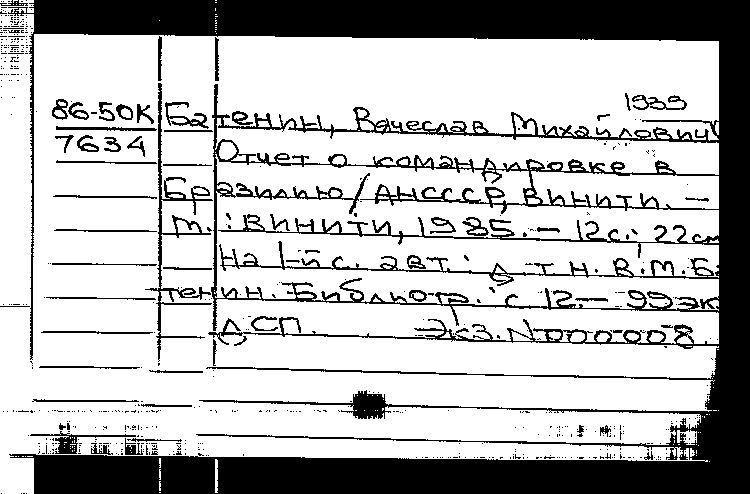 1939
86-50К Батенин, Вячеслав Михайлович
7634 Отчет о командировке в
Бразилию / АНСССР, ВИНИТИ. —
М. : ВИНИТИ, 1985. — 12с.; 22см
На 1-й с. авт.: д.т.н. В.М.Ба
тенин. Библиотр.: с 12. — 99 эк
ДСП. Экз. N000008.